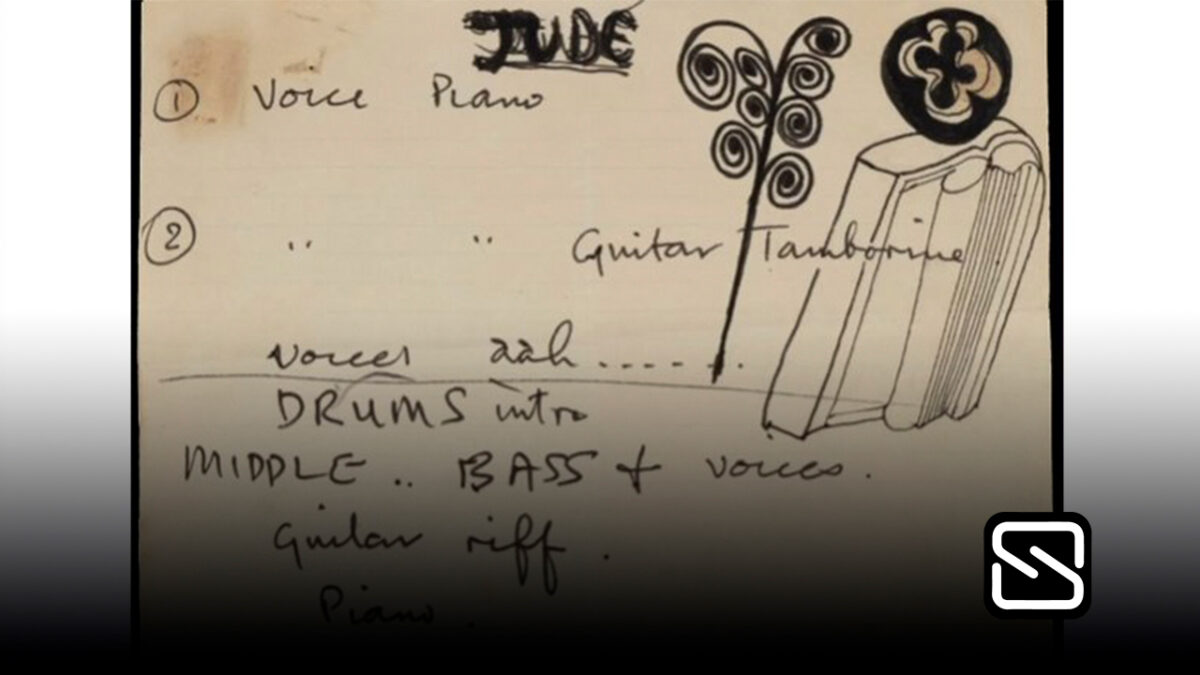 JUDE
① Voice Piano
② " " Guitar Tamborine
voices aah.......
DRUMS intro
MIDDLE .. BASS + voices.
Guitar riff.
Piano.